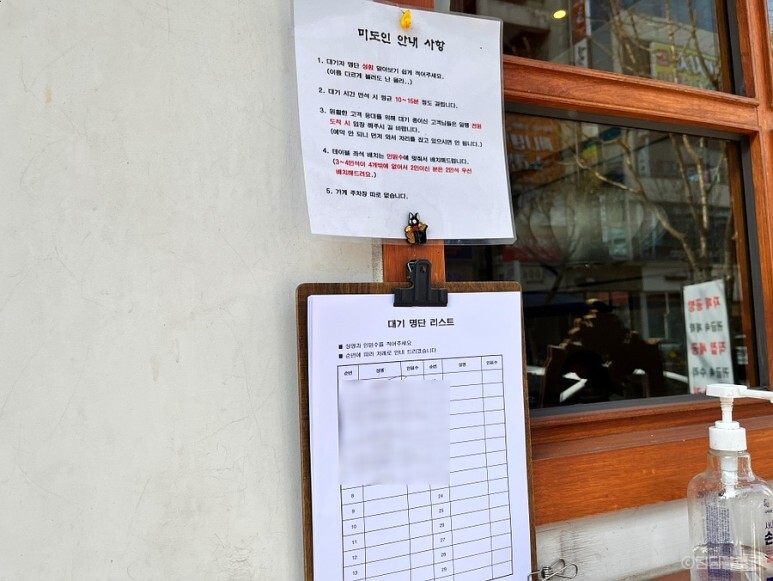 미도인 안내 사항
1. 대기자 명단 성함 알아보기 쉽게 적어주세요.
(이름 다르게 불러도 난 몰라..)
2. 대기 시간 만석 시 평균 10~15분 정도 걸립니다.
3. 원활한 고객 응대를 위해 대기 중이신 고객님들은 일행 전원
도착 시 입장 해주시길 바랍니다.
(예약 안 되니 먼저 와서 자리를 잡고 있으시면 안 됩니다.)
4. 테이블 좌석 배치는 인원수에 맞춰서 배치해드립니다.
(3~4인석이 4개밖에 없어서 2인이신 분은 2인석 우선
배치해드려요.)
5. 가게 주차장 따로 없습니다.
대기 명단 리스트
■ 성명과 인원수를 적어주세요
■ 순번에 따라 차례로 안내 드리겠습니다
순번 성명 인원수 순번 성명 인원수
8 24
9 25
10 26
11 27
12 28
13 29
자체공장
귀금속 제작
직접세공
귀금속 수리